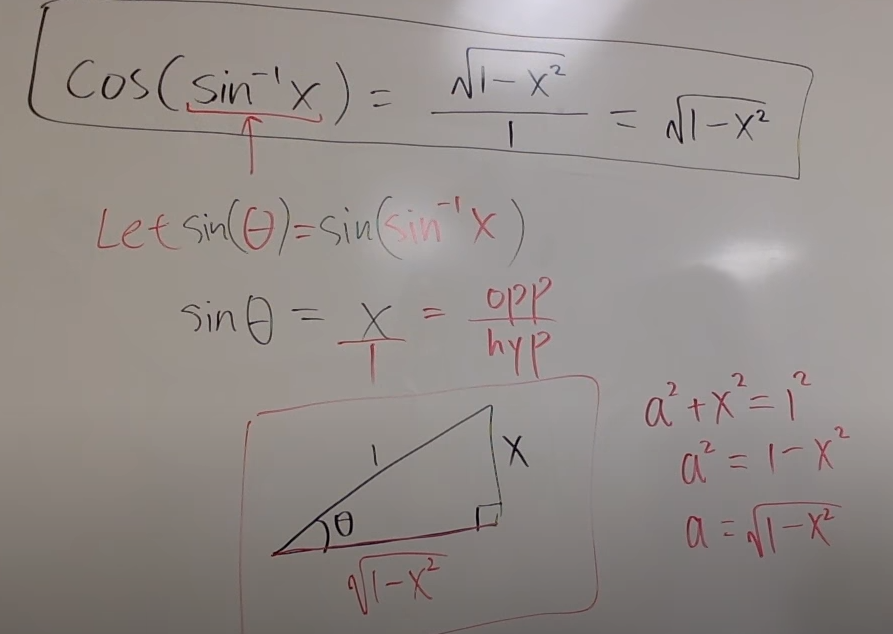 cos(sin⁻¹x) = √(1-x²)/1 = √(1-x²)
Let sin(θ)=sin(sin⁻¹x)
sinθ = x/1 = opp/hyp
1
x
θ
√(1-x²)
a²+x²=1²
a²=1-x²
a=√(1-x²)